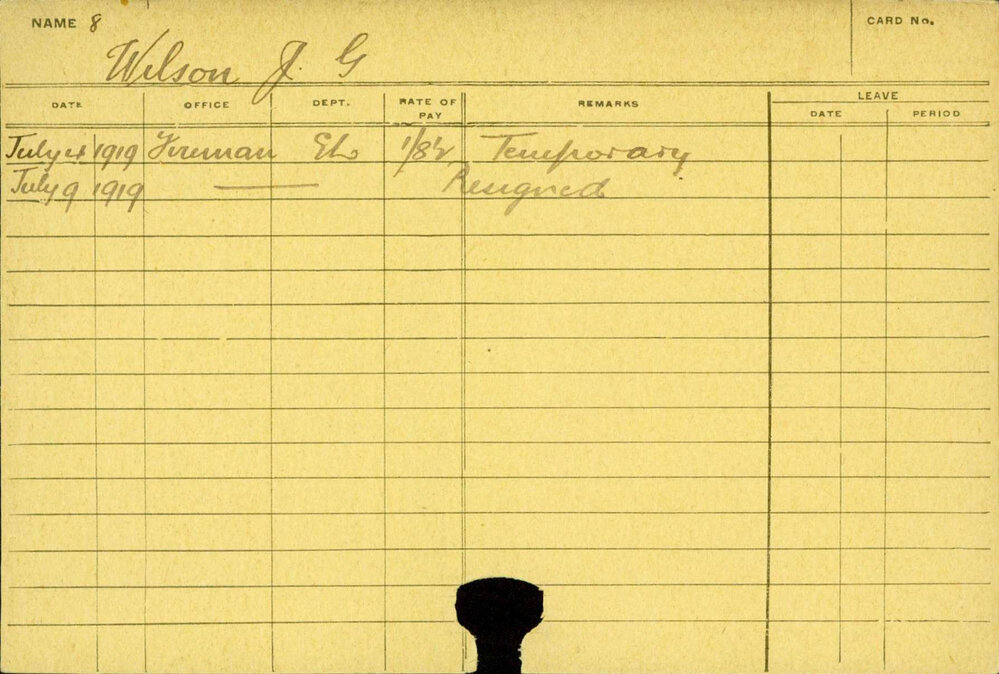 NAME 8 CARD No.
Wilson J. G
LEAVE
DATE OFFICE DEPT. RATE OF PAY REMARKS DATE PERIOD
July 4 1919 Fireman 1/8½ Temporary
July 9 1919 — Resigned